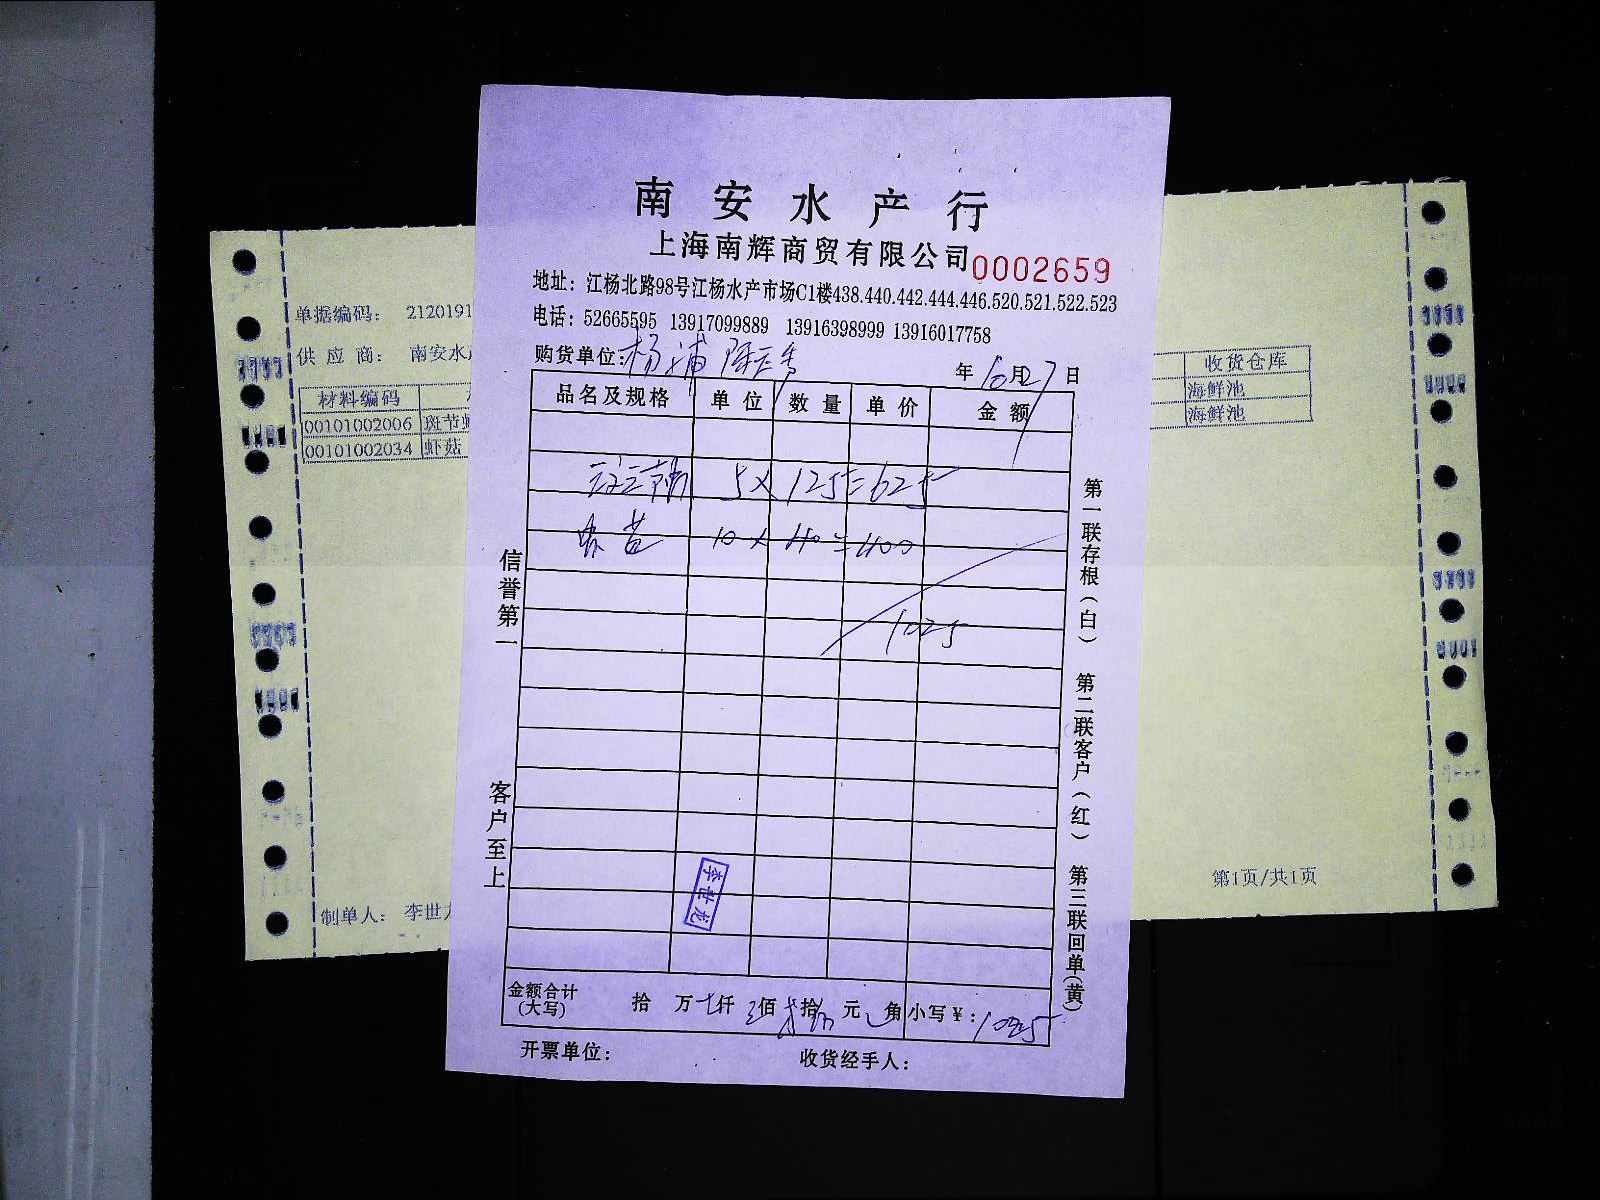 南安水产行
上海南辉商贸有限公司 0002659
地址：江杨北路98号江杨水产市场C1楼438.440.442.444.446.520.521.522.523
电话：52665595 13917099889 13916398999 13916017758
购货单位：杨浦
年 10月27日
品名及规格 单位 数量 单价 金额
5×125=625
虾菇 10×40=400
1025
信誉第一
客户至上
第一联存根（白） 第二联客户（红） 第三联回单（黄）
李世龙
金额合计（大写） 拾 万 仟 佰 拾 元 角 小写￥：1025
开票单位： 收货经手人：
单据编码： 2120191
供应商： 南安水
材料编码
00101002006 斑节
00101002034 虾菇
收货仓库
海鲜池
海鲜池
制单人： 李世
第1页/共1页